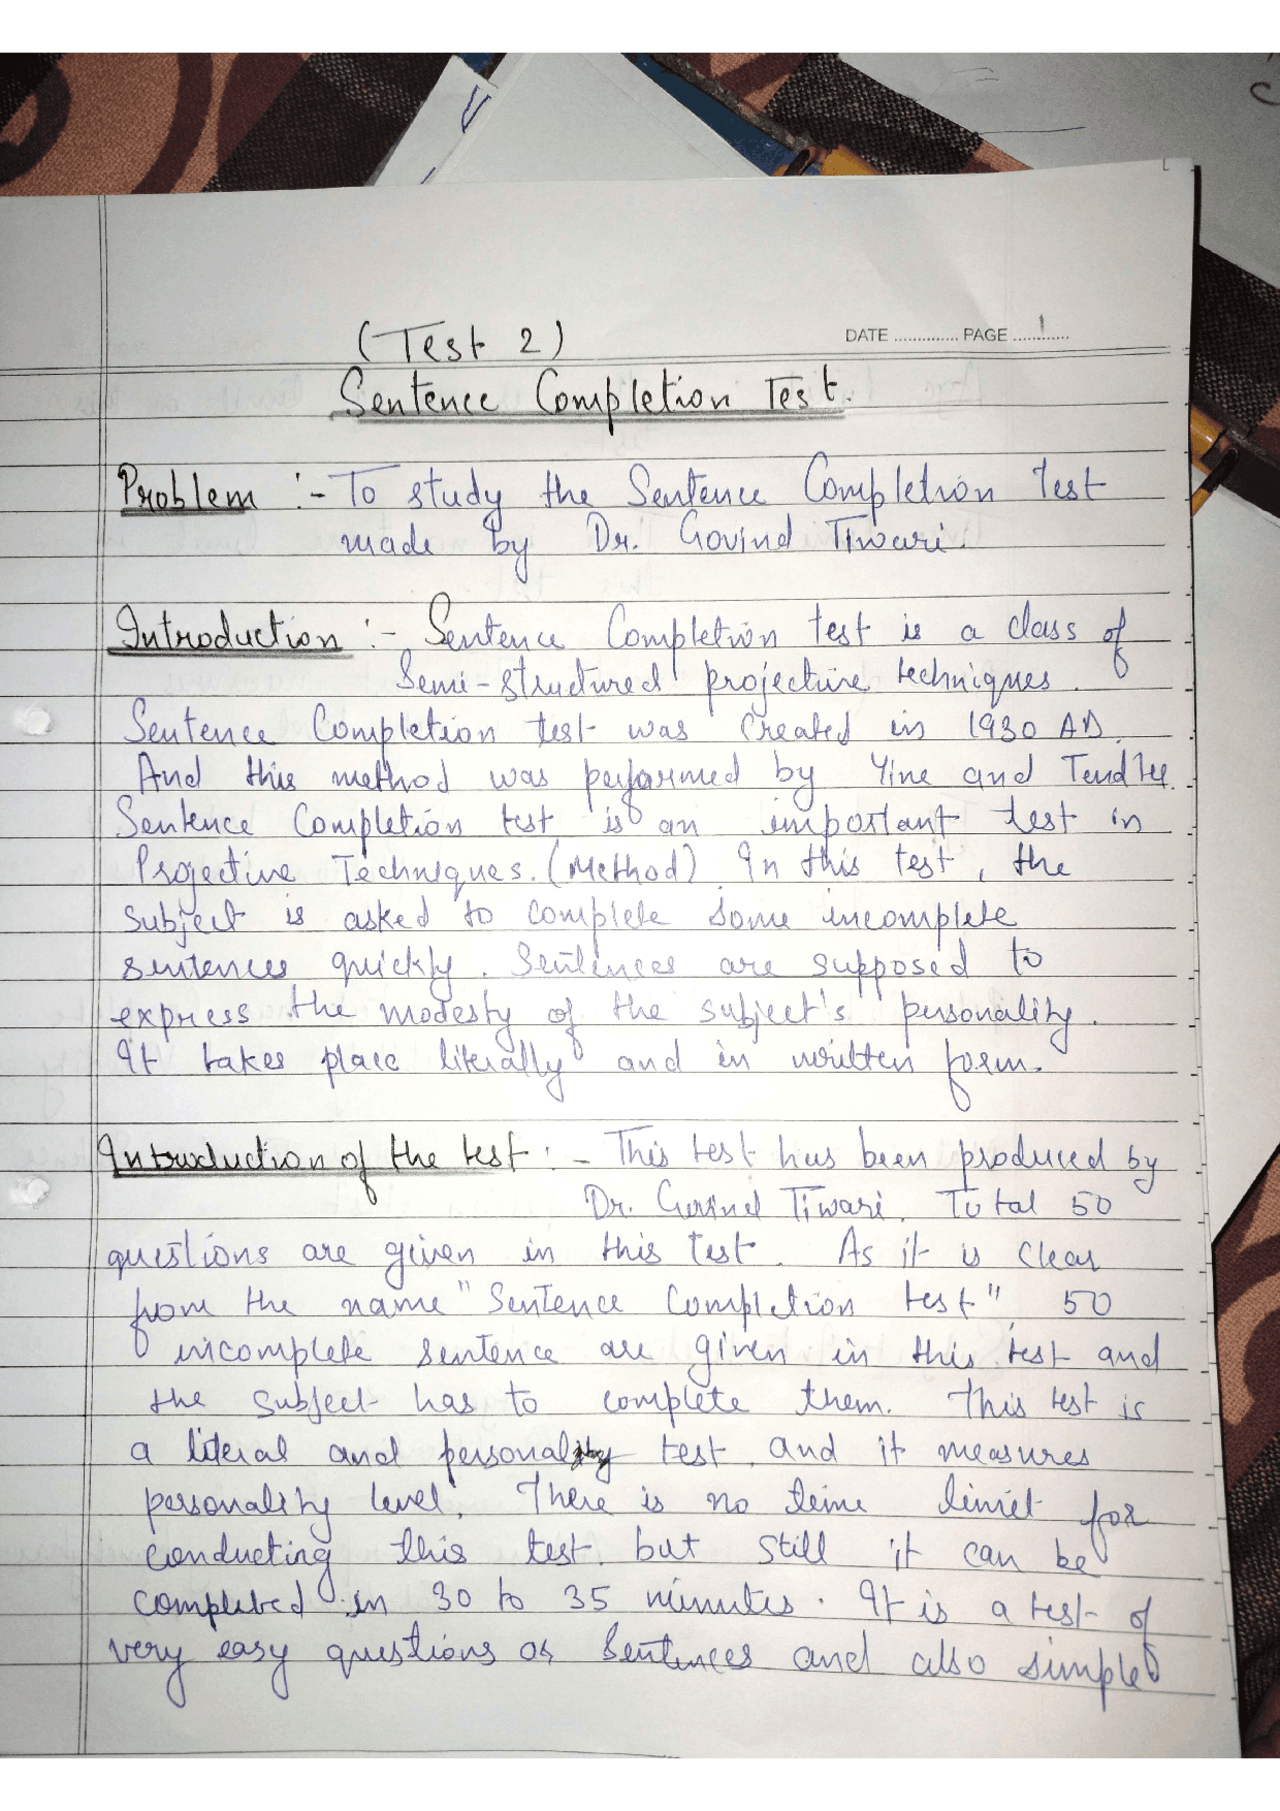 (Test 2)
DATE .............. PAGE ....1.......
Sentence Completion Test.
Problem :- To study the Sentence Completion Test
made by Dr. Govind Tiwari.
Introduction :- Sentence Completion test is a class of
Semi-structured projective techniques.
Sentence Completion test was created in 1930 AD.
And this method was performed by Yine and Tendler.
Sentence Completion test is an important test in
Projective Techniques. (Method) In this test, the
subject is asked to complete some incomplete
sentences quickly. Sentences are supposed to
express the modesty of the subject's personality.
It takes place literally and in written form.
Introduction of the test :- This test has been produced by
Dr. Govind Tiwari. Total 50
questions are given in this test. As it is clear
from the name "Sentence Completion test", 50
incomplete sentence are given in this test and
the subject has to complete them. This test is
a literal and personality test and it measures
personality level. There is no time limit for
conducting this test. but still it can be
completed in 30 to 35 minutes. It is a test of
very easy questions or Sentences and also simple